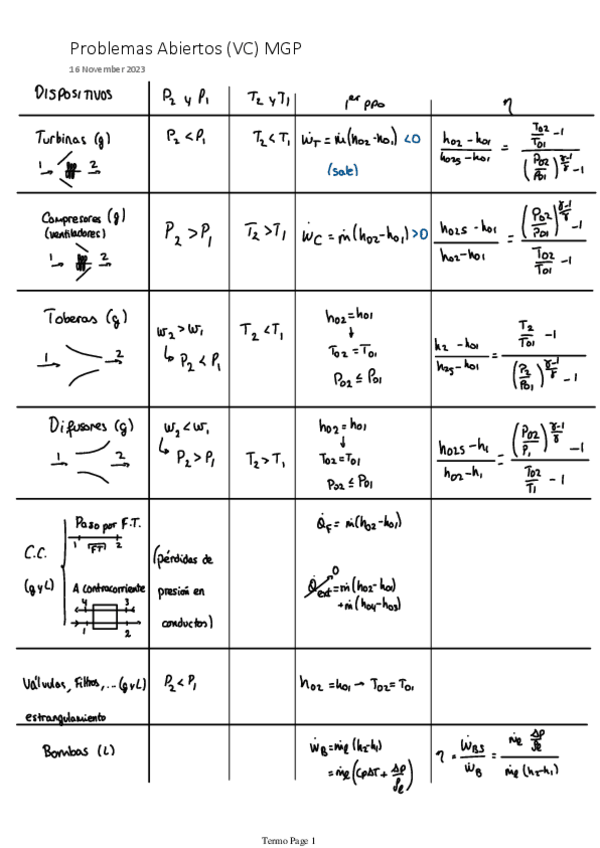 Problemas Abiertos (VC) MGP
16 November 2023
DISPOSITIVOS P₂ y P₁ T₂ y T₁ 1er ppo η
Turbinas (g) P₂ < P₁ T₂ < T₁ Ẇ_T = ṁ(h₀₂-h₀₁) <0 (sale) (h₀₂ - h₀₁)/(h₀₂s - h₀₁) = (T₀₂/T₀₁ - 1)/((P₀₂/P₀₁)^((γ-1)/γ) - 1)
1 2
Compresores (g) (ventiladores) P₂ > P₁ T₂ > T₁ Ẇ_C = ṁ(h₀₂-h₀₁) >0 (h₀₂s - h₀₁)/(h₀₂ - h₀₁) = ((P₀₂/P₀₁)^((γ-1)/γ) - 1)/(T₀₂/T₀₁ - 1)
1 2
Toberas (g) w₂ > w₁ ↳ P₂ < P₁ T₂ < T₁ h₀₂ = h₀₁ ↓ T₀₂ = T₀₁ P₀₂ ≤ P₀₁ (h₂ - h₀₁)/(h₂s - h₀₁) = (T₂/T₀₁ - 1)/((P₂/P₀₁)^((γ-1)/γ) - 1)
1 2
Difusores (g) w₂ < w₁ ↳ P₂ > P₁ T₂ > T₁ h₀₂ = h₀₁ ↓ T₀₂ = T₀₁ P₀₂ ≤ P₀₁ (h₀₂s - h₁)/(h₀₂ - h₁) = ((P₀₂/P₁)^((γ-1)/γ) - 1)/(T₀₂/T₁ - 1)
1 2
C.C. (g y L)
Paso por F.T. Q̇_F = ṁ(h₀₂-h₀₁)
1 FT 2
(pérdidas de presión en conductos)
A contracorriente Q̇ext→0 = ṁ(h₀₂-h₀₁) + ṁ(h₀₄-h₀₃)
4 3
1 2
Válvulas, Filtros, ... (g y L) P₂ < P₁ h₀₂ = h₀₁ → T₀₂ = T₀₁
estrangulamiento
Bombas (L) Ẇ_B = ṁ_e(h₂-h₁) = ṁ_e(cpΔT + Δp/ρ_e) η = Ẇ_BS/Ẇ_B = (ṁ_e Δp/ρ_e)/(ṁ_e (h₂-h₁))
Termo Page 1